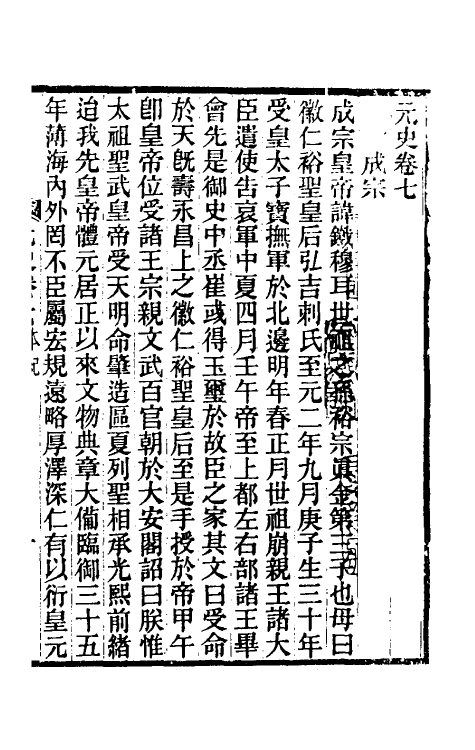 元史卷七
成宗
成宗皇帝諱鐵穆耳世祖之孫裕宗眞金第三子也母曰
徽仁裕聖皇后弘吉剌氏至元二年九月庚子生三十年
受皇太子寶撫軍於北邊明年春正月世祖崩親王諸大
臣遣使告哀軍中夏四月壬午帝至上都左右部諸王畢
會先是御史中丞崔彧得玉璽於故臣之家其文曰受命
於天旣壽永昌上之徽仁裕聖皇后至是手授於帝甲午
卽皇帝位受諸王宗親文武百官朝於大安閣詔曰朕惟
太祖聖武皇帝受天明命肇造區夏列聖相承光熙前緒
迨我先皇帝體元居正以來文物典章大備臨御三十五
年薄海內外罔不臣屬宏規遠略厚澤深仁有以衍皇元